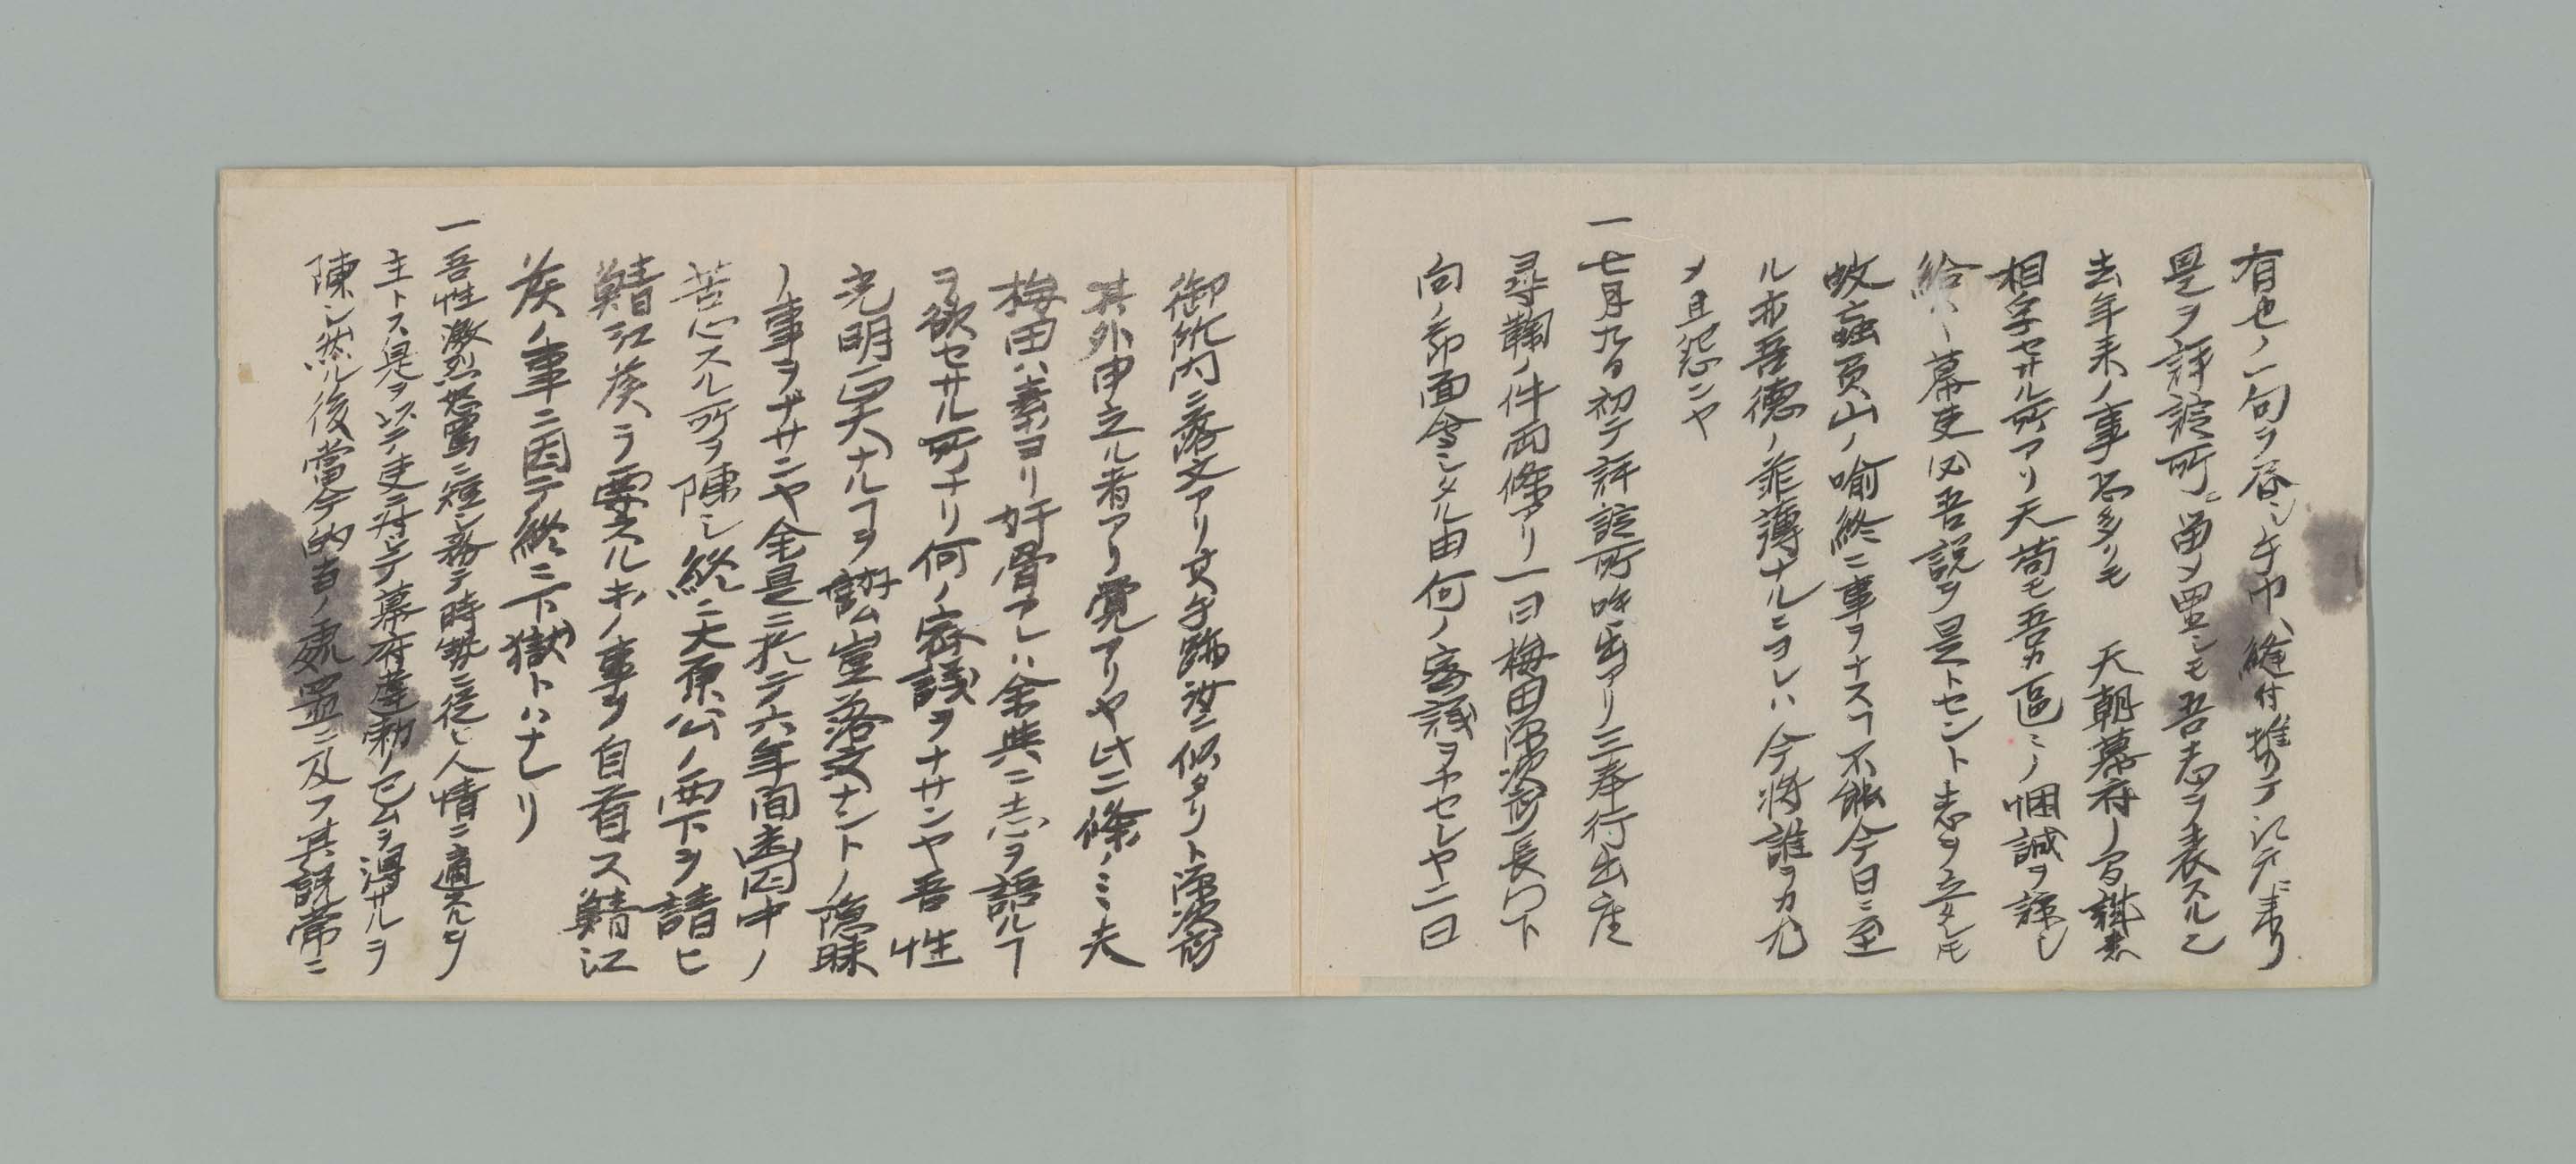 有也ノ一句ヲ書シ手巾ヘ縫付携テ江戸ニ来リ
是ヲ評諚所ニ留メ置シモ吾志ヲ表スル也
去年来ノ事恐多クモ　天朝幕府ノ間誠意
相孚セサル所アリ天苟モ吾カ區々ノ悃誠ヲ諒シ
給ハヽ幕吏必吾説ヲ是トセント志ヲ立タレトモ
蚊蝱負山ノ喩終ニ事ヲナスヿ不能今日ニ至
ル亦吾徳ノ菲薄ナルニヨレハ今将誰ヲカ尤
メ且怨ンヤ
一七月九日初テ評諚所呼出アリ三奉行出座
尋鞠ノ件両條アリ一曰梅田源次郎長門下
向ノ節面會シタル由何ノ密議ヲナセシヤ二曰
御所内ニ落文アリ其手跡汝ニ似タリト源次郎
其外申立ル者アリ覚アリヤ此二條ノミ夫
梅田ハ素ヨリ奸骨アレハ余與ニ志ヲ語ルヿ
ヲ欲セサル所ナリ何ノ密議ヲナサンヤ吾性
光明正大ナルヿヲ好ム豈落文ナントノ隠昧
ノ事ヲナサンヤ余是ニ於テ六年間幽囚中ノ
苦心スル所ヲ陳シ終ニ大原公ノ西下ヲ請ヒ
鯖江侯ヲ要スル等ノ事ヲ自首ス鯖江
侯ノ事ニ因テ終ニ下獄トハナレリ
一吾性激烈怒罵ニ短シ務テ時勢ニ従ヒ人情ニ適スルヲ
主トス是ヲ以テ吏ニ對シテ幕府違勅ノ已ムヲ得サルヲ
陳シ然ル後當今的當ノ處置ニ及フ其説常ニ